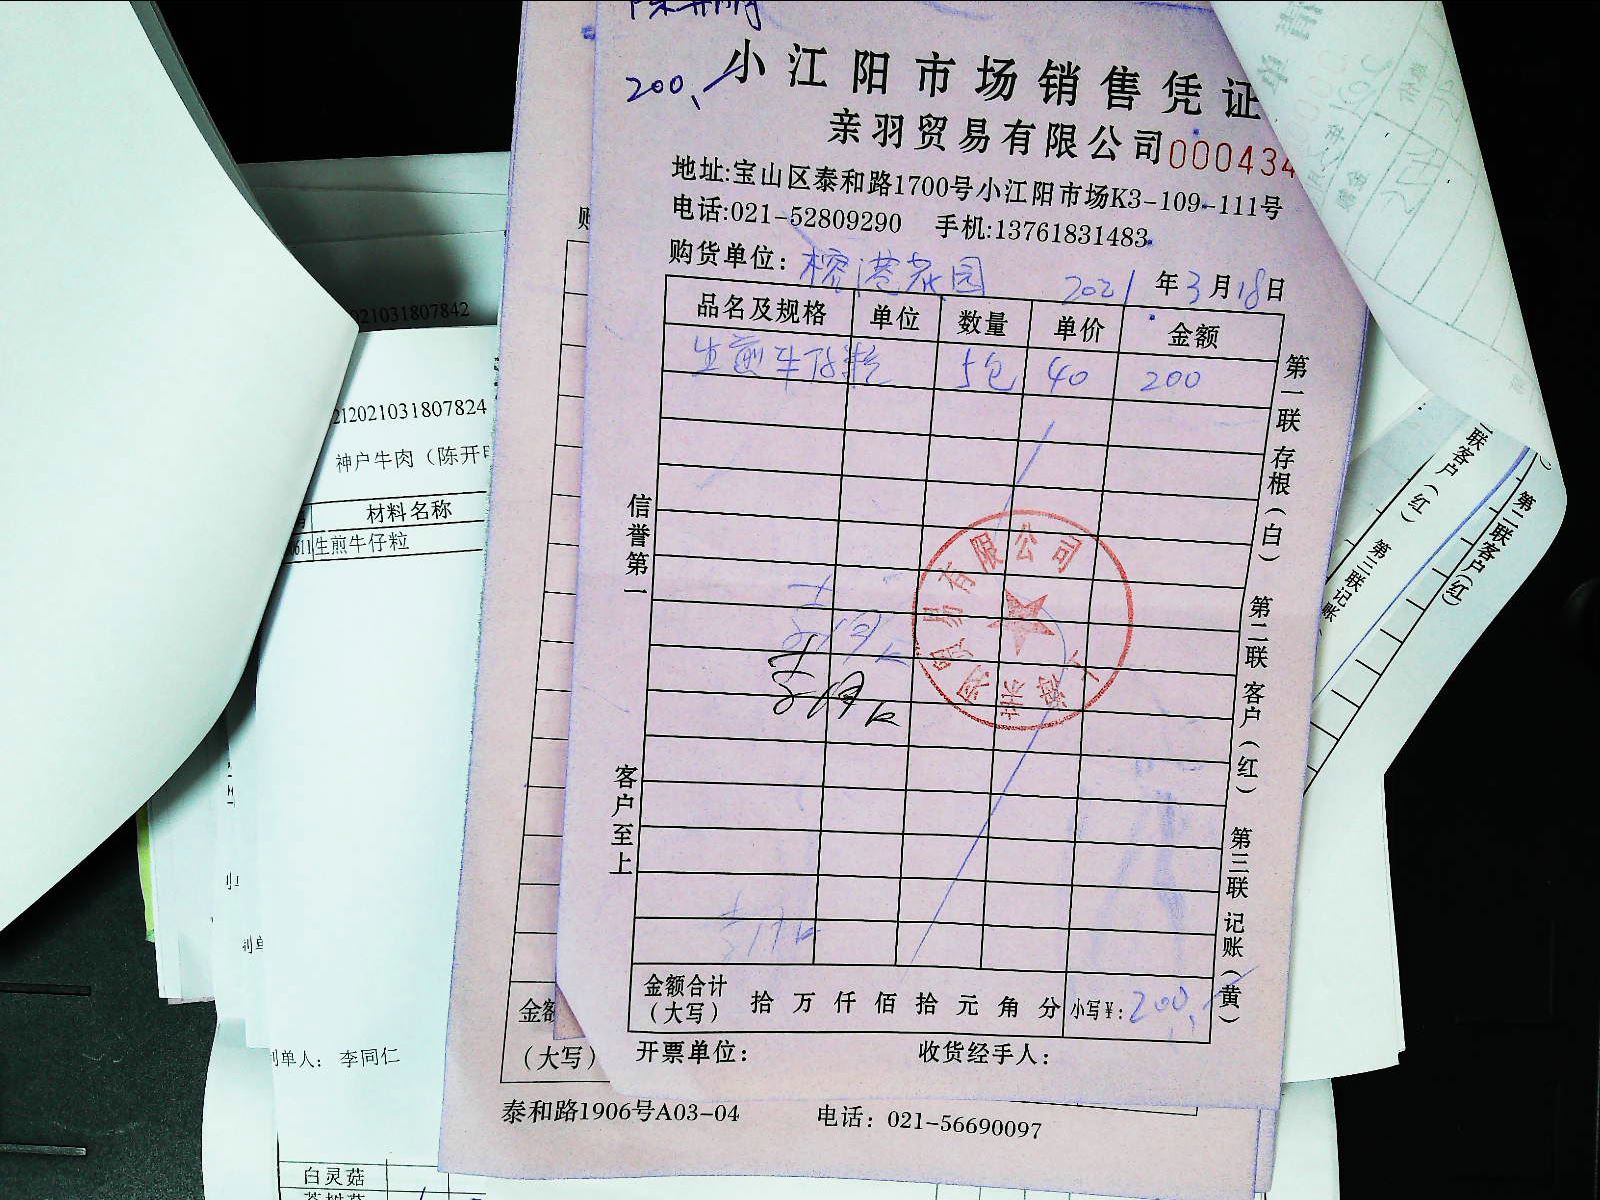 陈开明
200、
小江阳市场销售凭证
亲羽贸易有限公司 000434
地址:宝山区泰和路1700号小江阳市场K3-109-111号
电话:021-52809290 手机:13761831483
购货单位: 榕港花园 2021 年 3 月 18 日
品名及规格 单位 数量 单价 金额
生煎牛仔粒 5包 40 200
信誉第一
客户至上
第一联 存根(白) 第二联 客户(红) 第三联 记账(黄)
金额合计(大写) 拾 万 仟 佰 拾 元 角 分 小写¥: 200、
开票单位: 收货经手人:
贸易有限公司
泰和路1906号A03-04 电话: 021-56690097
(大写)
021031807842
212021031807824
神户牛肉（陈开
材料名称
生煎牛仔粒
制单人: 李同仁
白灵菇
二联客户(红)
第三联记账
第二联客户(红)